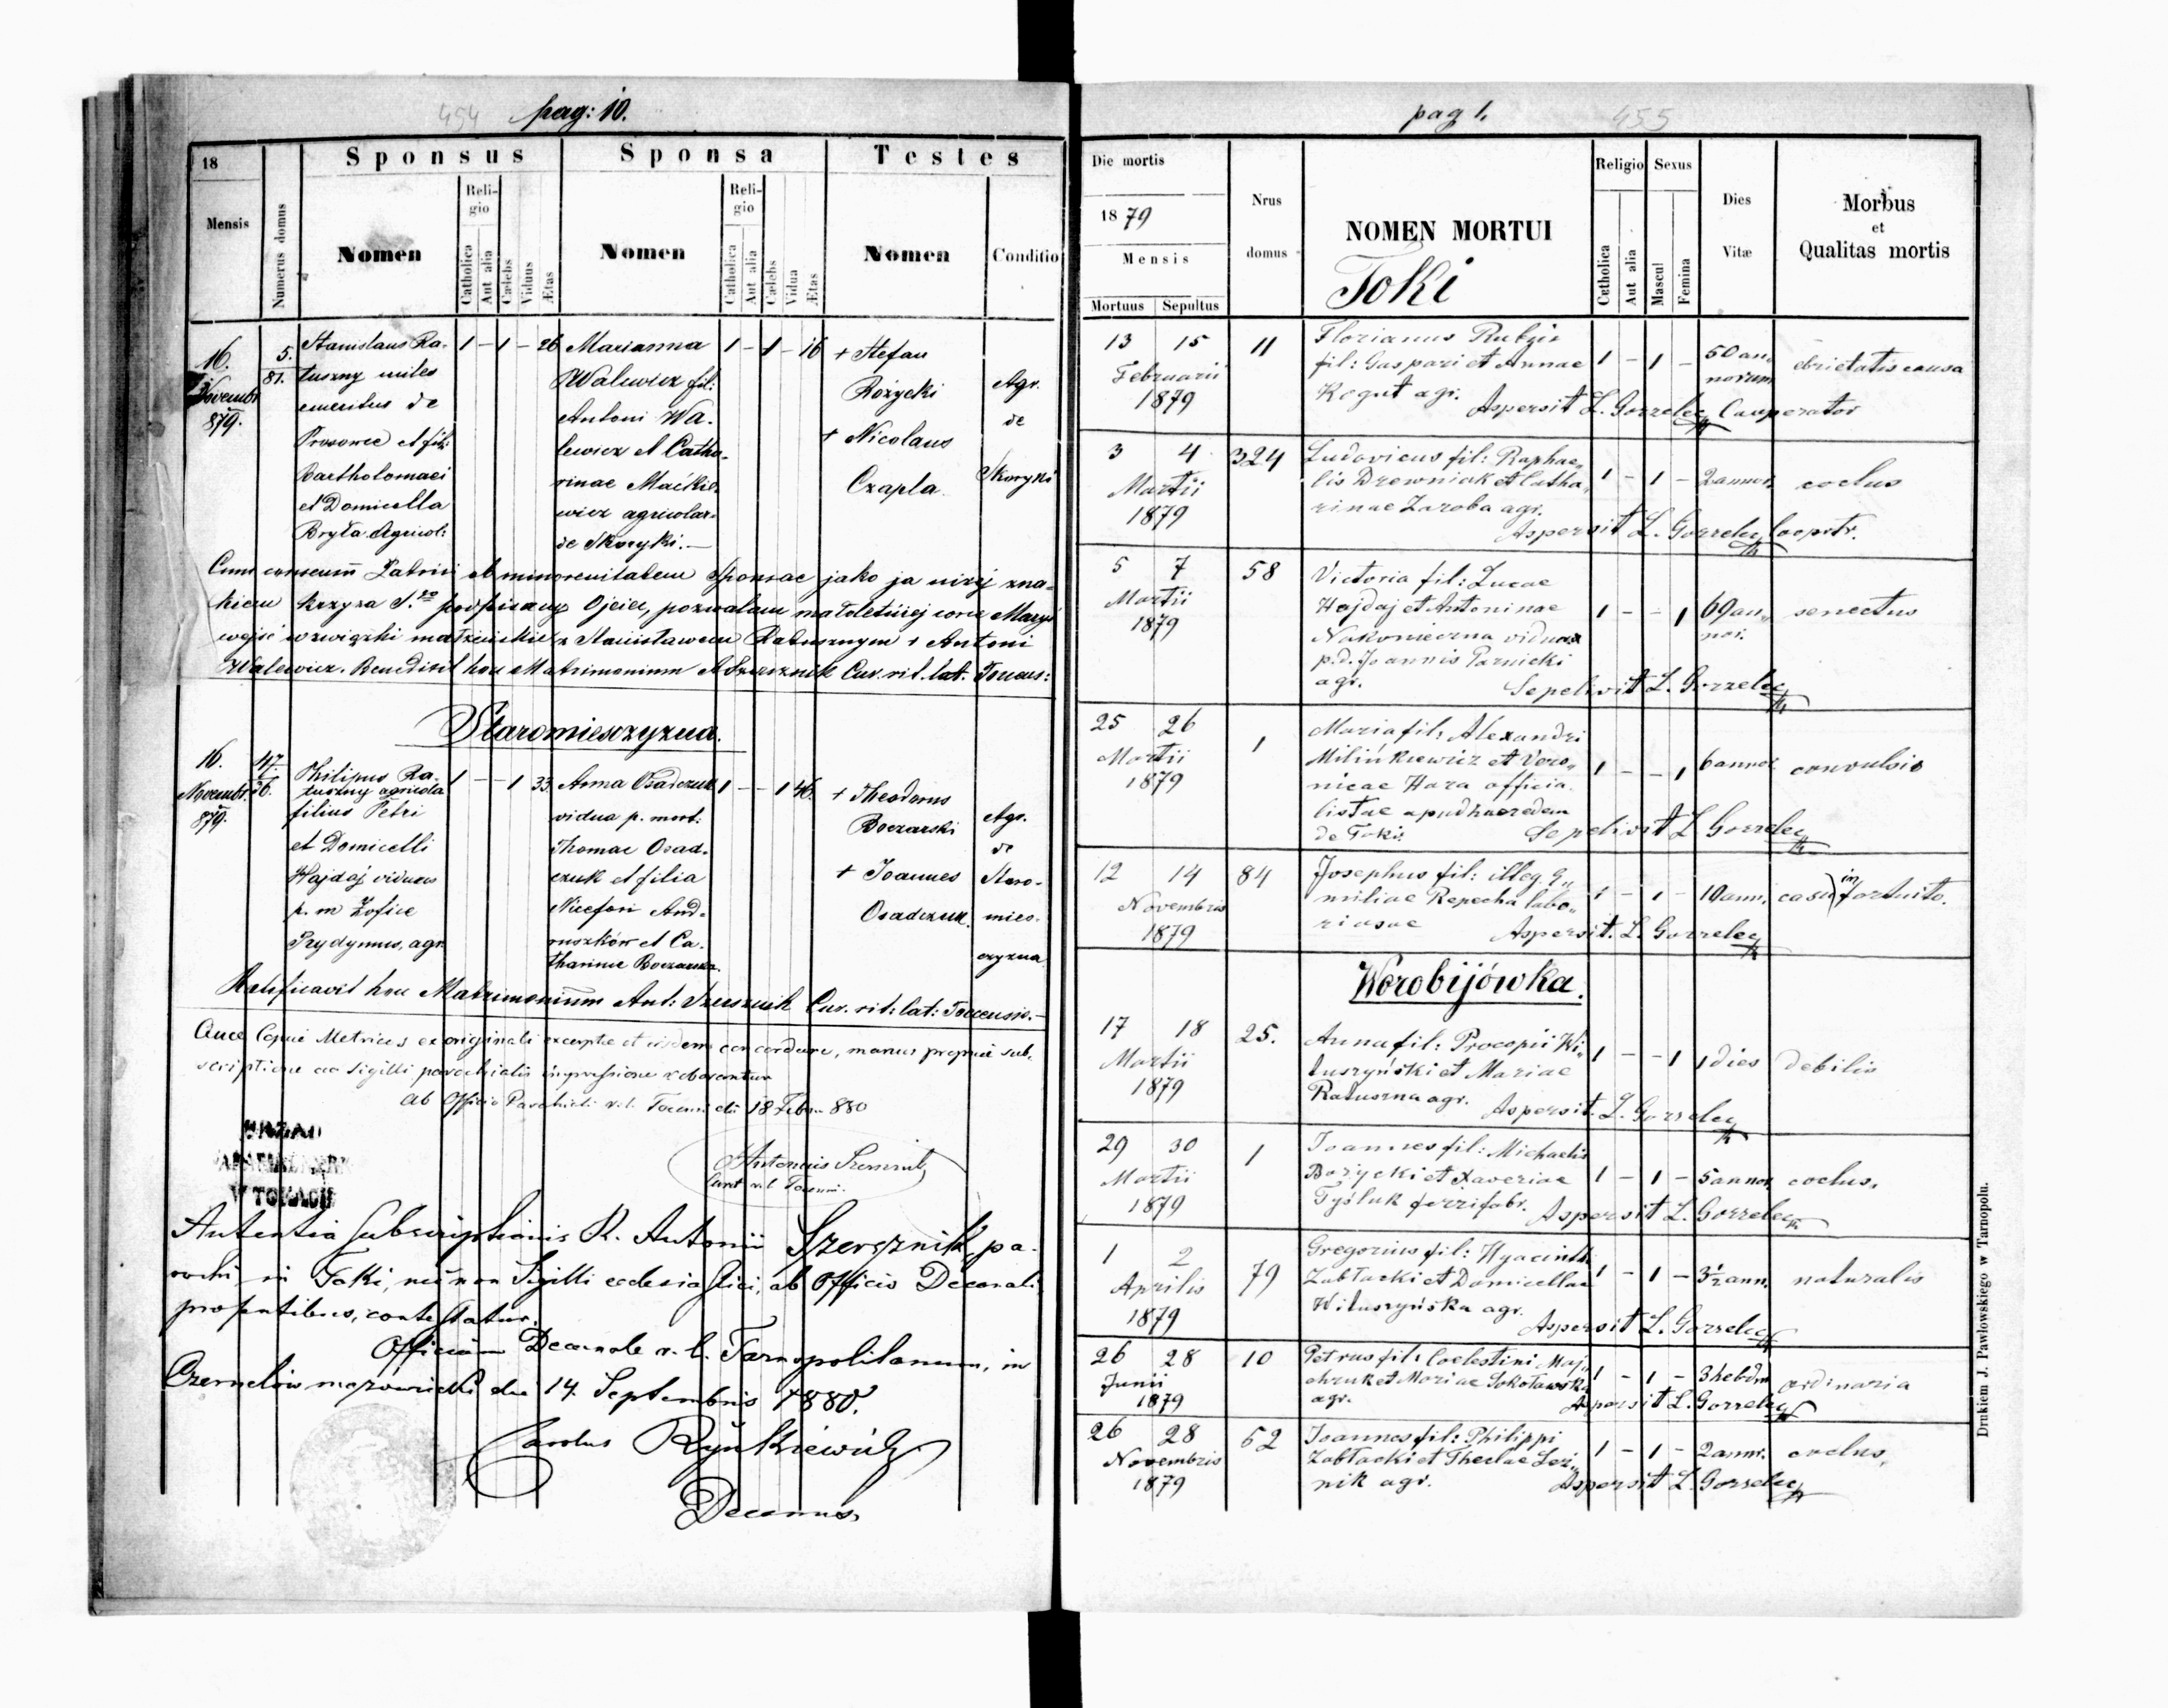 454 pag: 10.
18
Mensis
Numerus domus
Sponsus
Nomen
Religio
Catholica
Aut alia
Cælebs
Viduus
Ætas
Sponsa
Nomen
Religio
Catholica
Aut alia
Cælebs
Vidua
Ætas
Testes
Nomen
Conditio
16.
Novembr
879.
5.
81.
Stanislaus Ra-
tuszny miles
emeritus de
Prosowce et fil:
Bartholomaei
et Domicella
Bryła Agricol:
1 – 1 – 26
Marianna
Walewicz fil:
Antoni Wa-
lewicz et Catha-
rinae Maćkie-
wicz agricolar.
de Skoryki.—
1 – 1 – 16
+ Stefan
Rożycki
+ Nicolaus
Czapla
Agr.
de
Skoryki
Cum consensu Patris ob minorenitatem Sponsae jako ja niżej zna-
kiem krzyża S. podpisany Ojciec, pozwalam małoletniej córce Maryi
wejść w związki małżeńskie z Stanisławem Ratusznym + Antoni
Walewicz. Benedixit hoc Matrimonium A Szersznik Cur. rit. lat. Tocens:
Staromiesczyzna.
16.
Novembr.
879.
47.
26.
Philipus Ra-
tuszny agricola
filius Petri
et Domicelli
Hajdaj viduus
p. m Zofiae
Przydymus, agr.
1 – – 1 33
Anna Osadczuk
vidua p. mort:
Thomae Osad-
czuk et filia
Nicefori And-
ruszków et Ca-
tharinae Boczarska.
1 – – 1 46.
+ Theodorus
Boczarski
+ Joannes
Osadczuk.
Agr.
de
Staro-
mies-
czyzna
Ratificavit hoc Matrimonium Ant: Szersznik Cur. rit: lat: Tocensis.—
Quae Copia Metrices ex originali excerpta et eisdem concordare, manus propria sub-
scriptione ac Sigilli parochialis impressione roborantur
Ab Officio Parochiali r. l. Tocensi die 18 Febr. 880
URZĄD
W TOKACH
Antonius Szersznik
Curat r. l. Tocensi.
Autentia Subscriptionis R. Antonii Szersznik, pa-
rochi in Toki, nec non Sigilli ecclesiastici, ab Officio Decanali
praesentibus, contestatur.
Officium Decanale r. l. Tarnopolitanum, in
Czernelów mazowiecki die 14. Septembris 1880.
Carolus Ryńkiewicz
Decanus
pag 1. 455
Die mortis
1879
Mensis
Mortuus
Sepultus
Nrus
domus
NOMEN MORTUI
Toki
Religio
Catholica
Aut alia
Sexus
Mascul
Femina
Dies
Vitæ
Morbus
et
Qualitas mortis
13 15
Februarii
1879
11
Florianus Rubzis
fil: Gaspari et Annae
Kogut agr.
1 – 1 –
50 an„
norum
ebrietatis causa
Aspersit L. Gorzelec Cooperator
3 4
Martii
1879
324
Ludovicus fil: Raphae„
lis Drewniak et Catha„
rinae Zaroba agr.
1 – 1 –
2 annor.
coctus
Aspersit L. Gorzelec Cooprtr.
5 7
Martii
1879
58
Victoria fil: Lucae
Hajdaj et Antoninae
Nakonieczna vidua
p.d. Joannis Parnicki
agr.
1 – – 1
69 an„
nor.
senectus
Sepelivit L. Gorzelec
25 26
Martii
1879
1
Maria fil: Alexandri
Milińkiewicz et Vero„
nicae Hara officia„
listae apud haeredem
de Toki:
1 – – 1
6 annor
convulsio
Sepelivit L Gorzelec
12 14
Novembris
1879
84
Josephus fil: illeg. E„
miliae Repecha labo„
riosae
1 – 1 –
10 ann.
casu infortuito.
Aspersit. L. Gorzelec
Worobijówka.
17 18
Martii
1879
25.
Anna fil: Procopii Wi„
tuszyński et Mariae
Ratuszna agr.
1 – – 1
1 dies
debilis
Aspersit. L. Gorzelec
29 30
Martii
1879
1
Joannes fil: Michaelis
Bożycki et Xaveriae
Tyśluk ferrifabr.
1 – 1 –
5 annor.
coctus.
Aspersit L. Gorzelec
1 2
Aprilis
1879
79
Gregorius fil: Hyacinth.
Zabłocki et Domicellae
Wituszyńska agr.
1 – 1 –
3½ ann.
naturalis
Aspersit L. Gorzelec
26 28
Junii
1879
10
Petrus fil: Coelestini Maj„
chruk et Mariae Sokołowska
agr.
1 – 1 –
3 hebdm
ordinaria
Aspersit L. Gorzelec
26 28
Novembris
1879
52
Joannes fil: Philippi
Zabłocki et Theclae Lez„
nik agr.
1 – 1 –
2 annr.
coctus.
Aspersit L. Gorzelec
Drukiem J. Pawłowskiego w Tarnopolu.